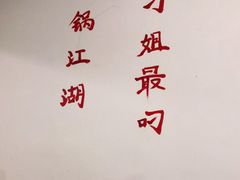 姐最叼
锅江湖